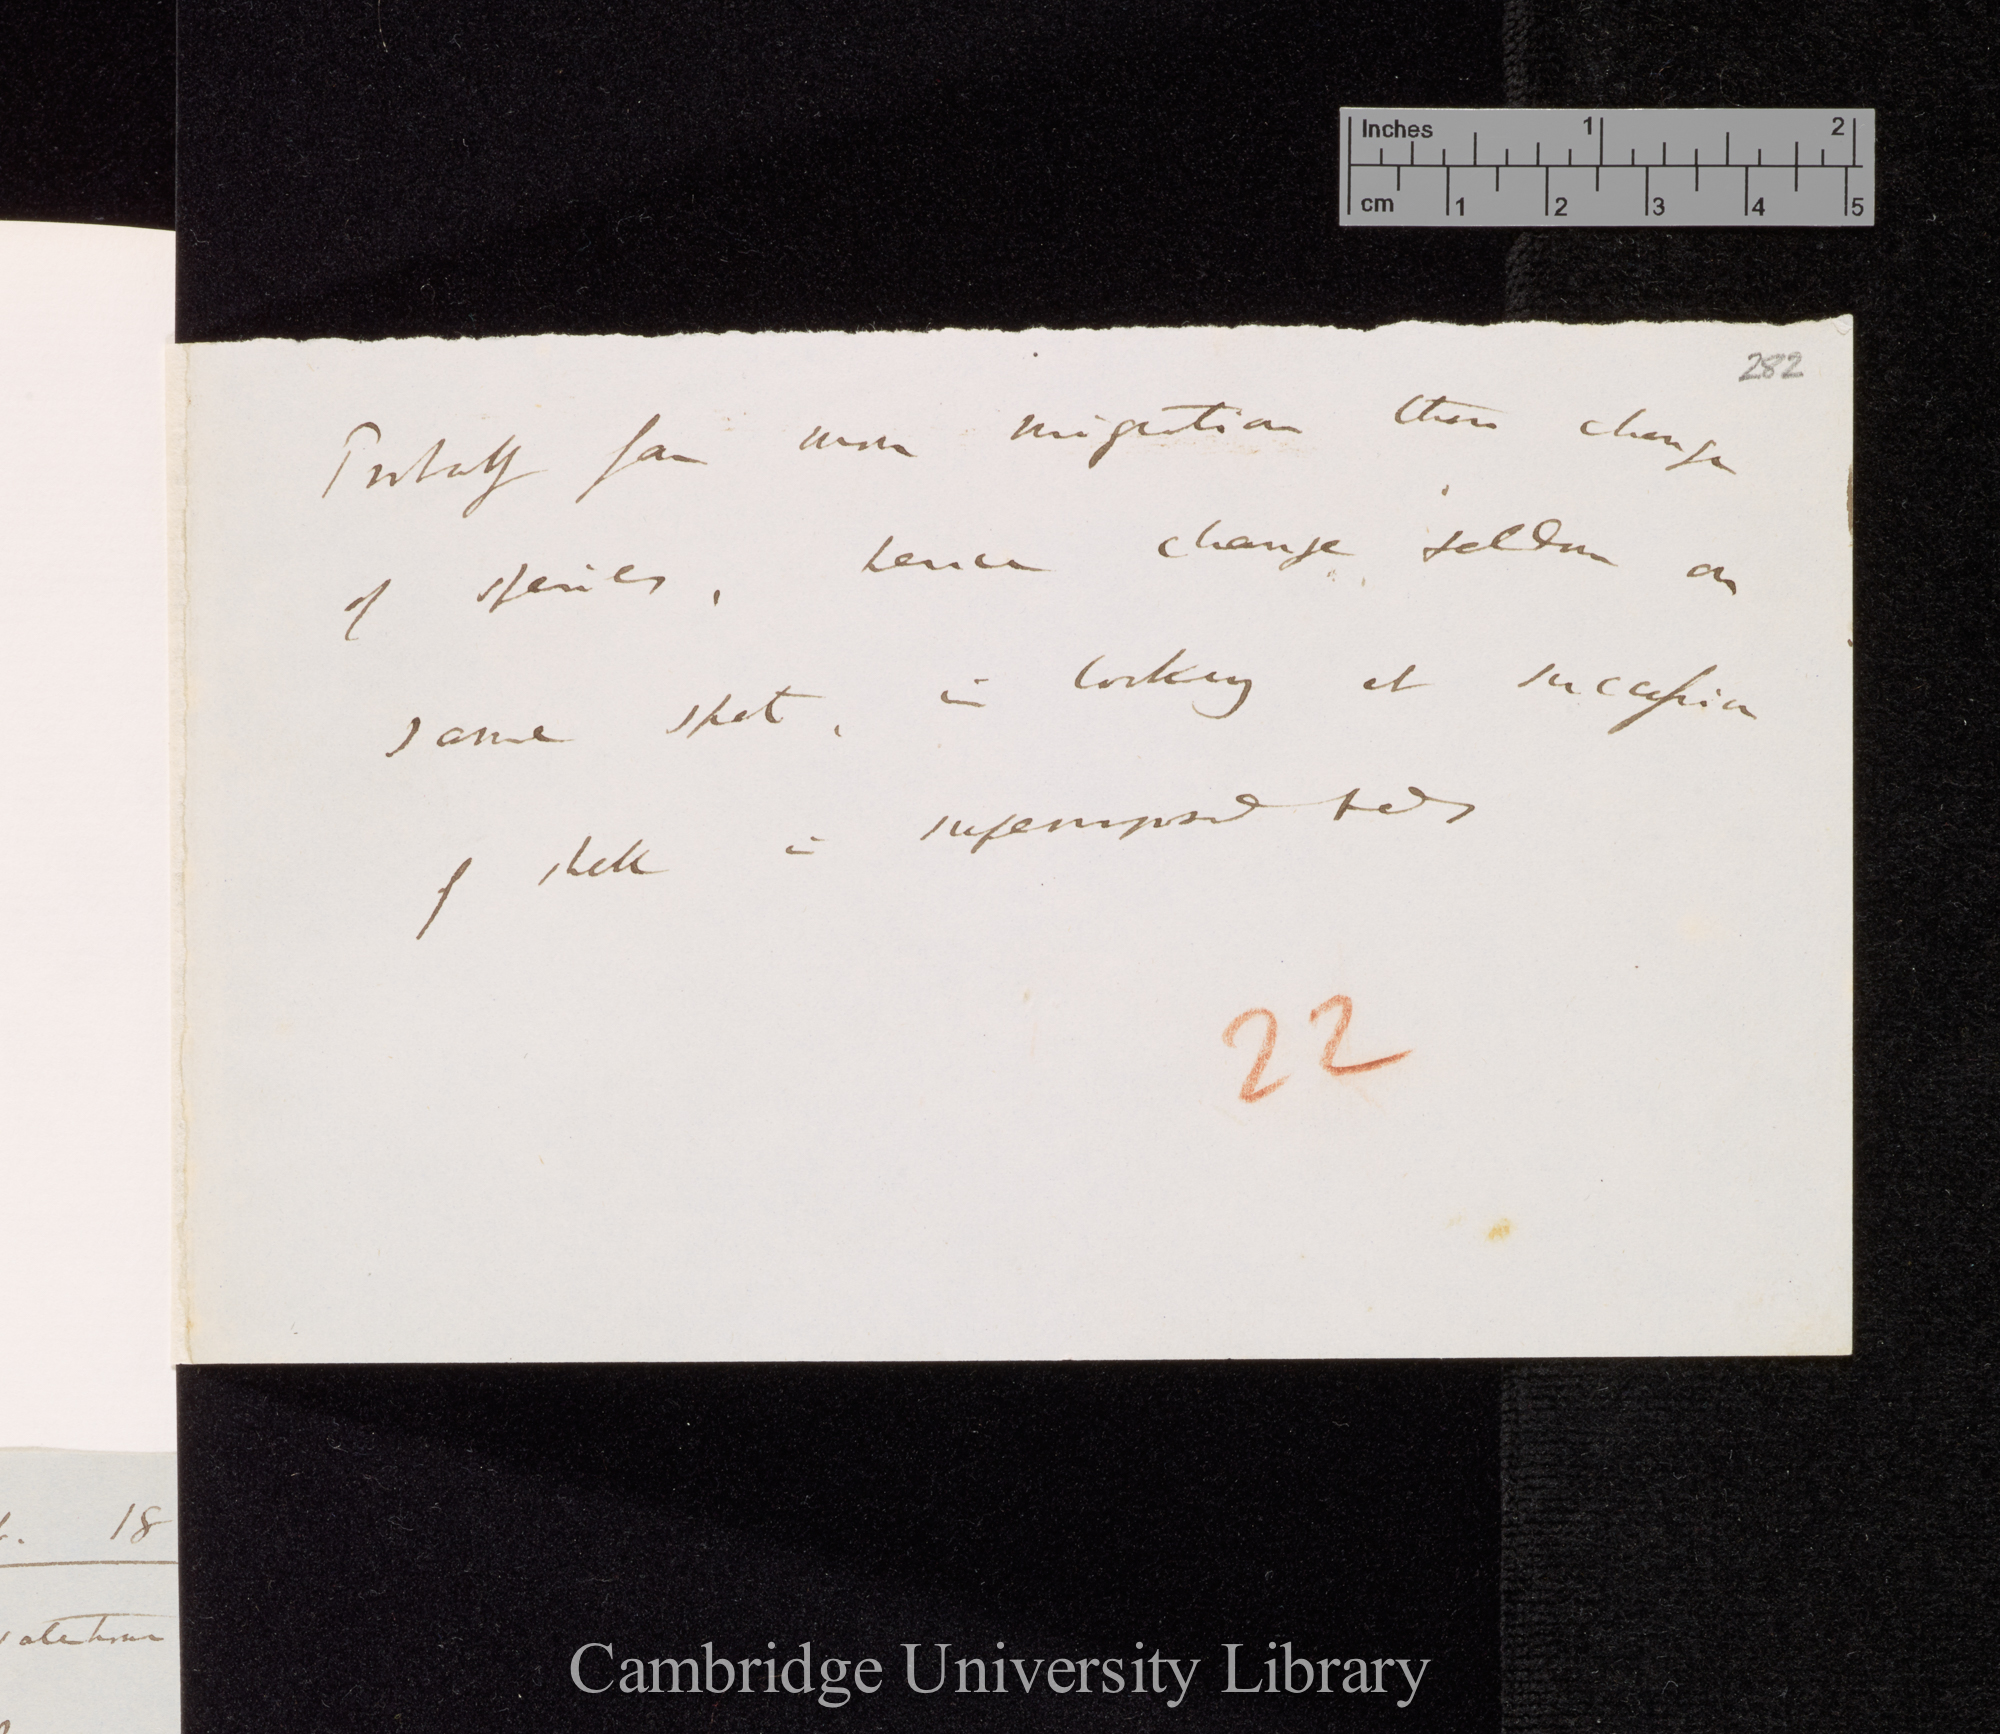 Inches 1 2
cm 1 2 3 4 5
282
Probably far more migration than change
of species, hence change seldom on
same spot, in looking at succession
of shells in superimposed beds
22
18
Cambridge University Library